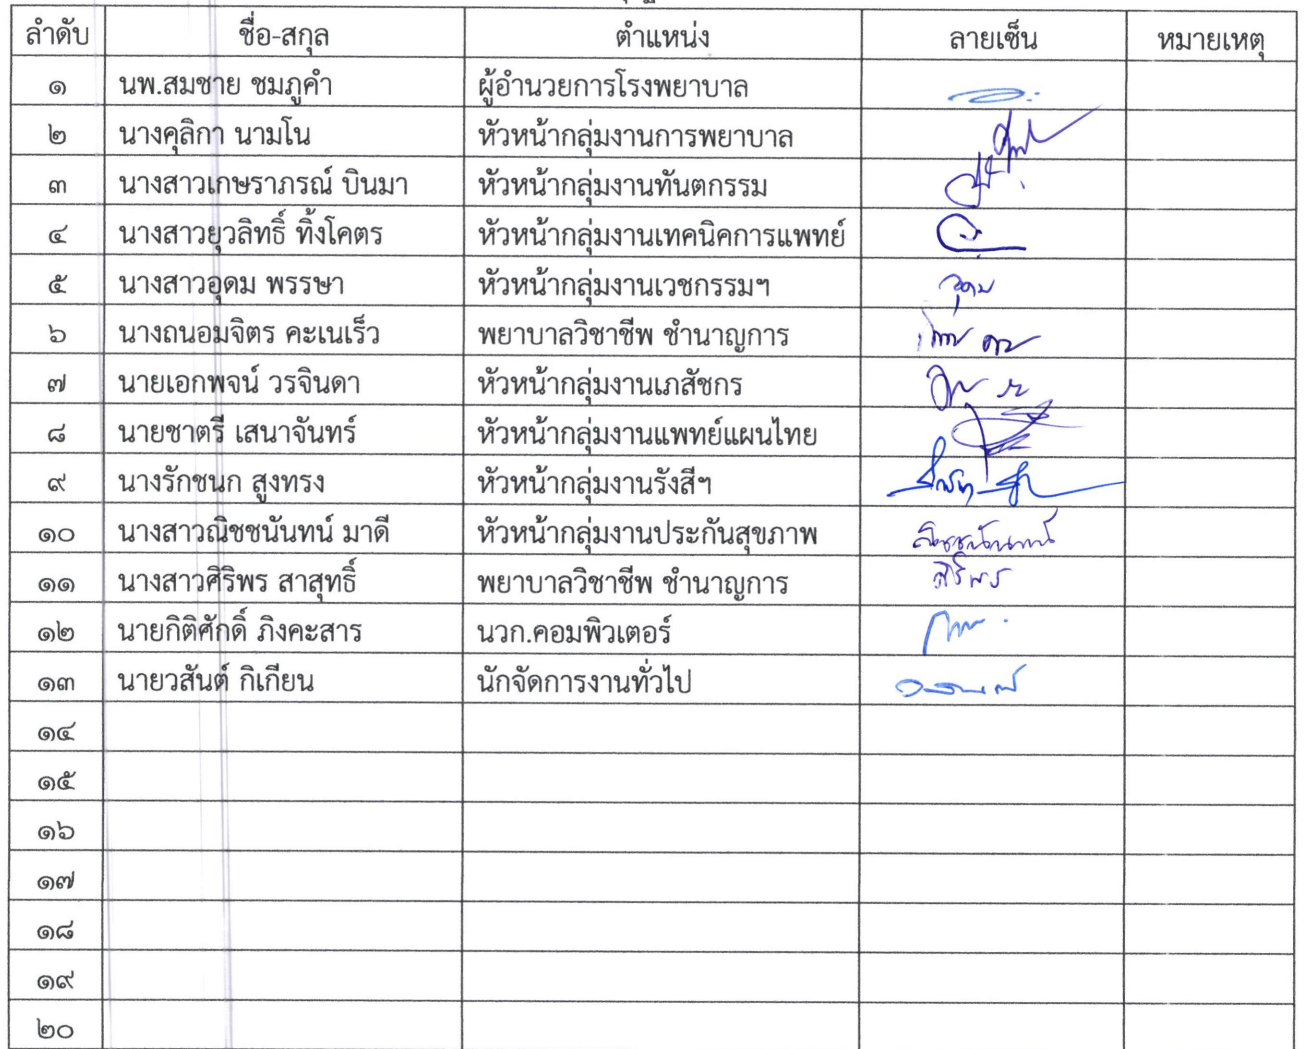 ลำดับ ชื่อ-สกุล ตำแหน่ง ลายเซ็น หมายเหตุ
๑ นพ.สมชาย ชมภูคำ ผู้อำนวยการโรงพยาบาล
๒ นางคุลิกา นามโน หัวหน้ากลุ่มงานการพยาบาล
๓ นางสาวเกษราภรณ์ บินมา หัวหน้ากลุ่มงานทันตกรรม
๔ นางสาวยุวลิทธิ์ ทิ้งโคตร หัวหน้ากลุ่มงานเทคนิคการแพทย์
๕ นางสาวอุดม พรรษา หัวหน้ากลุ่มงานเวชกรรมฯ อุดม
๖ นางถนอมจิตร คะเนเร็ว พยาบาลวิชาชีพ ชำนาญการ
๗ นายเอกพจน์ วรจินดา หัวหน้ากลุ่มงานเภสัชกร
๘ นายชาตรี เสนาจันทร์ หัวหน้ากลุ่มงานแพทย์แผนไทย
๙ นางรักชนก สูงทรง หัวหน้ากลุ่มงานรังสีฯ
๑๐ นางสาวณิชชนันทน์ มาดี หัวหน้ากลุ่มงานประกันสุขภาพ ณิชชนันทน์
๑๑ นางสาวศิริพร สาสุทธิ์ พยาบาลวิชาชีพ ชำนาญการ ศิริพร
๑๒ นายกิติศักดิ์ ภิงคะสาร นวก.คอมพิวเตอร์
๑๓ นายวสันต์ กิเกียน นักจัดการงานทั่วไป วสันต์
๑๔
๑๕
๑๖
๑๗
๑๘
๑๙
๒๐